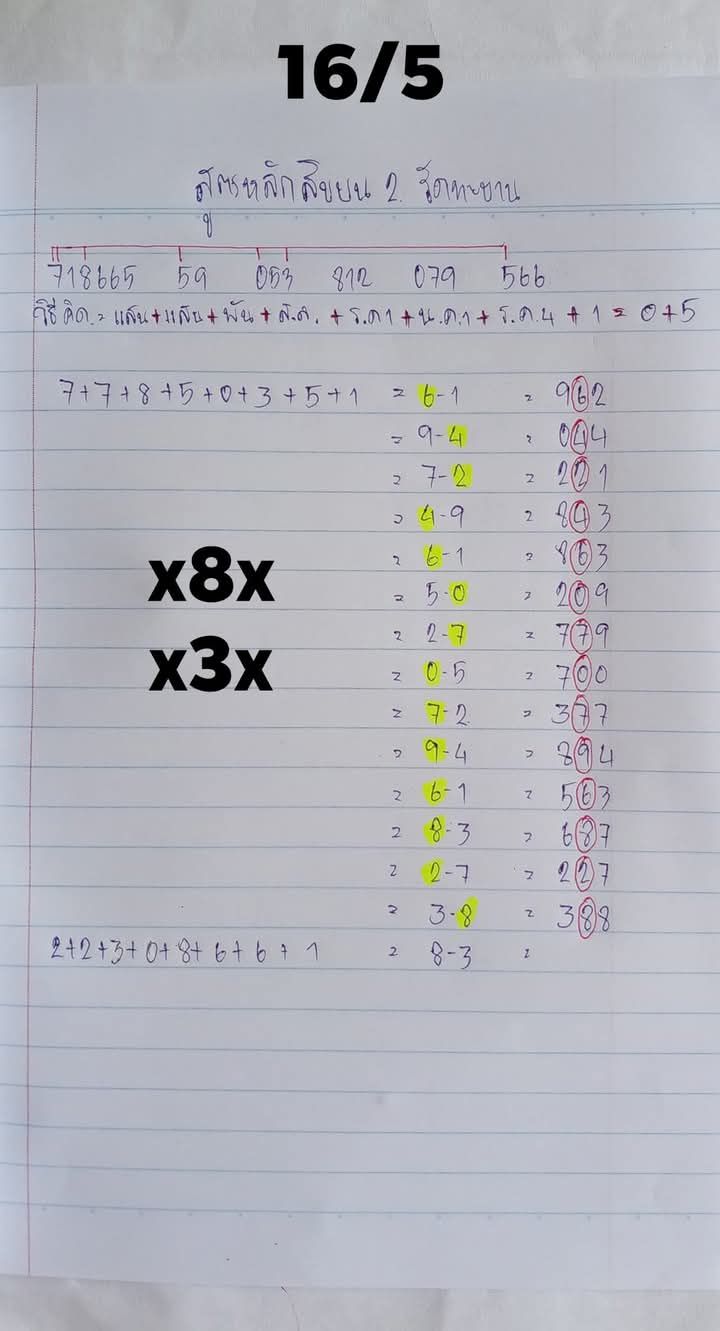 16/5
สูตรหลักสิบบน 2. รัดทะยาน
718665 59 053 812 079 566
วิธีคิด = แสน+แสน+พัน+ส.ศ. + ร.ศ1 + น.ศ.1 + ร.ศ.4 + 1 = 0+5
7+7+8+5+0+3+5+1 = 6-1 = 962
= 9-4 = 044
= 7-2 = 221
= 4-9 = 843
= 6-1 = 863
= 5-0 = 209
= 2-7 = 779
= 0-5 = 700
= 7-2 = 377
= 9-4 = 894
= 6-1 = 563
= 8-3 = 687
= 2-7 = 227
= 3-8 = 388
2+2+3+0+8+6+6+1 = 8-3 =
x8x
x3x